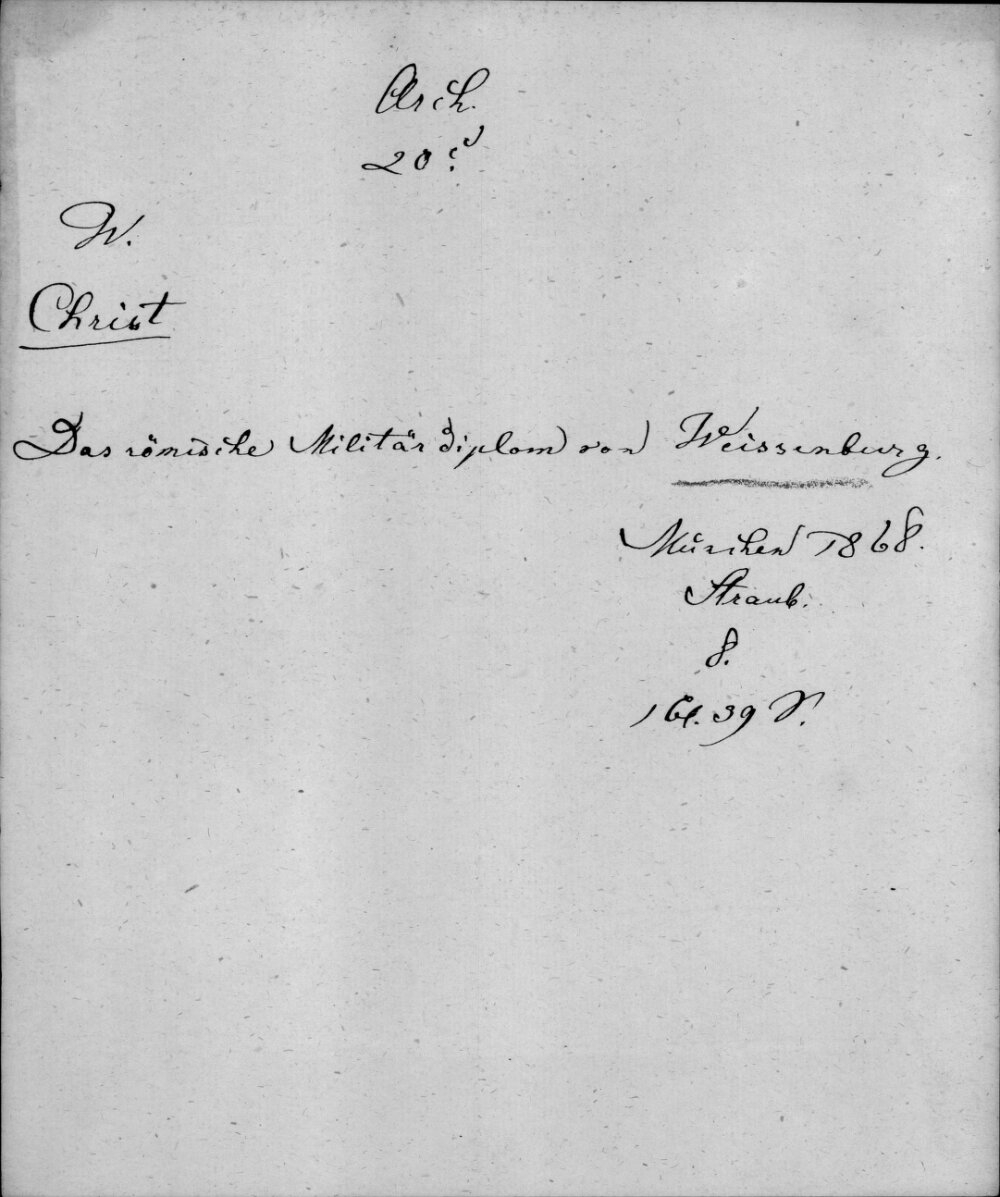 Arch.
20
W.
Christ
Das römische Militärdiplom von Weissenburg.
München 1868.
Straub.
8.
1 Bl. 39 S.